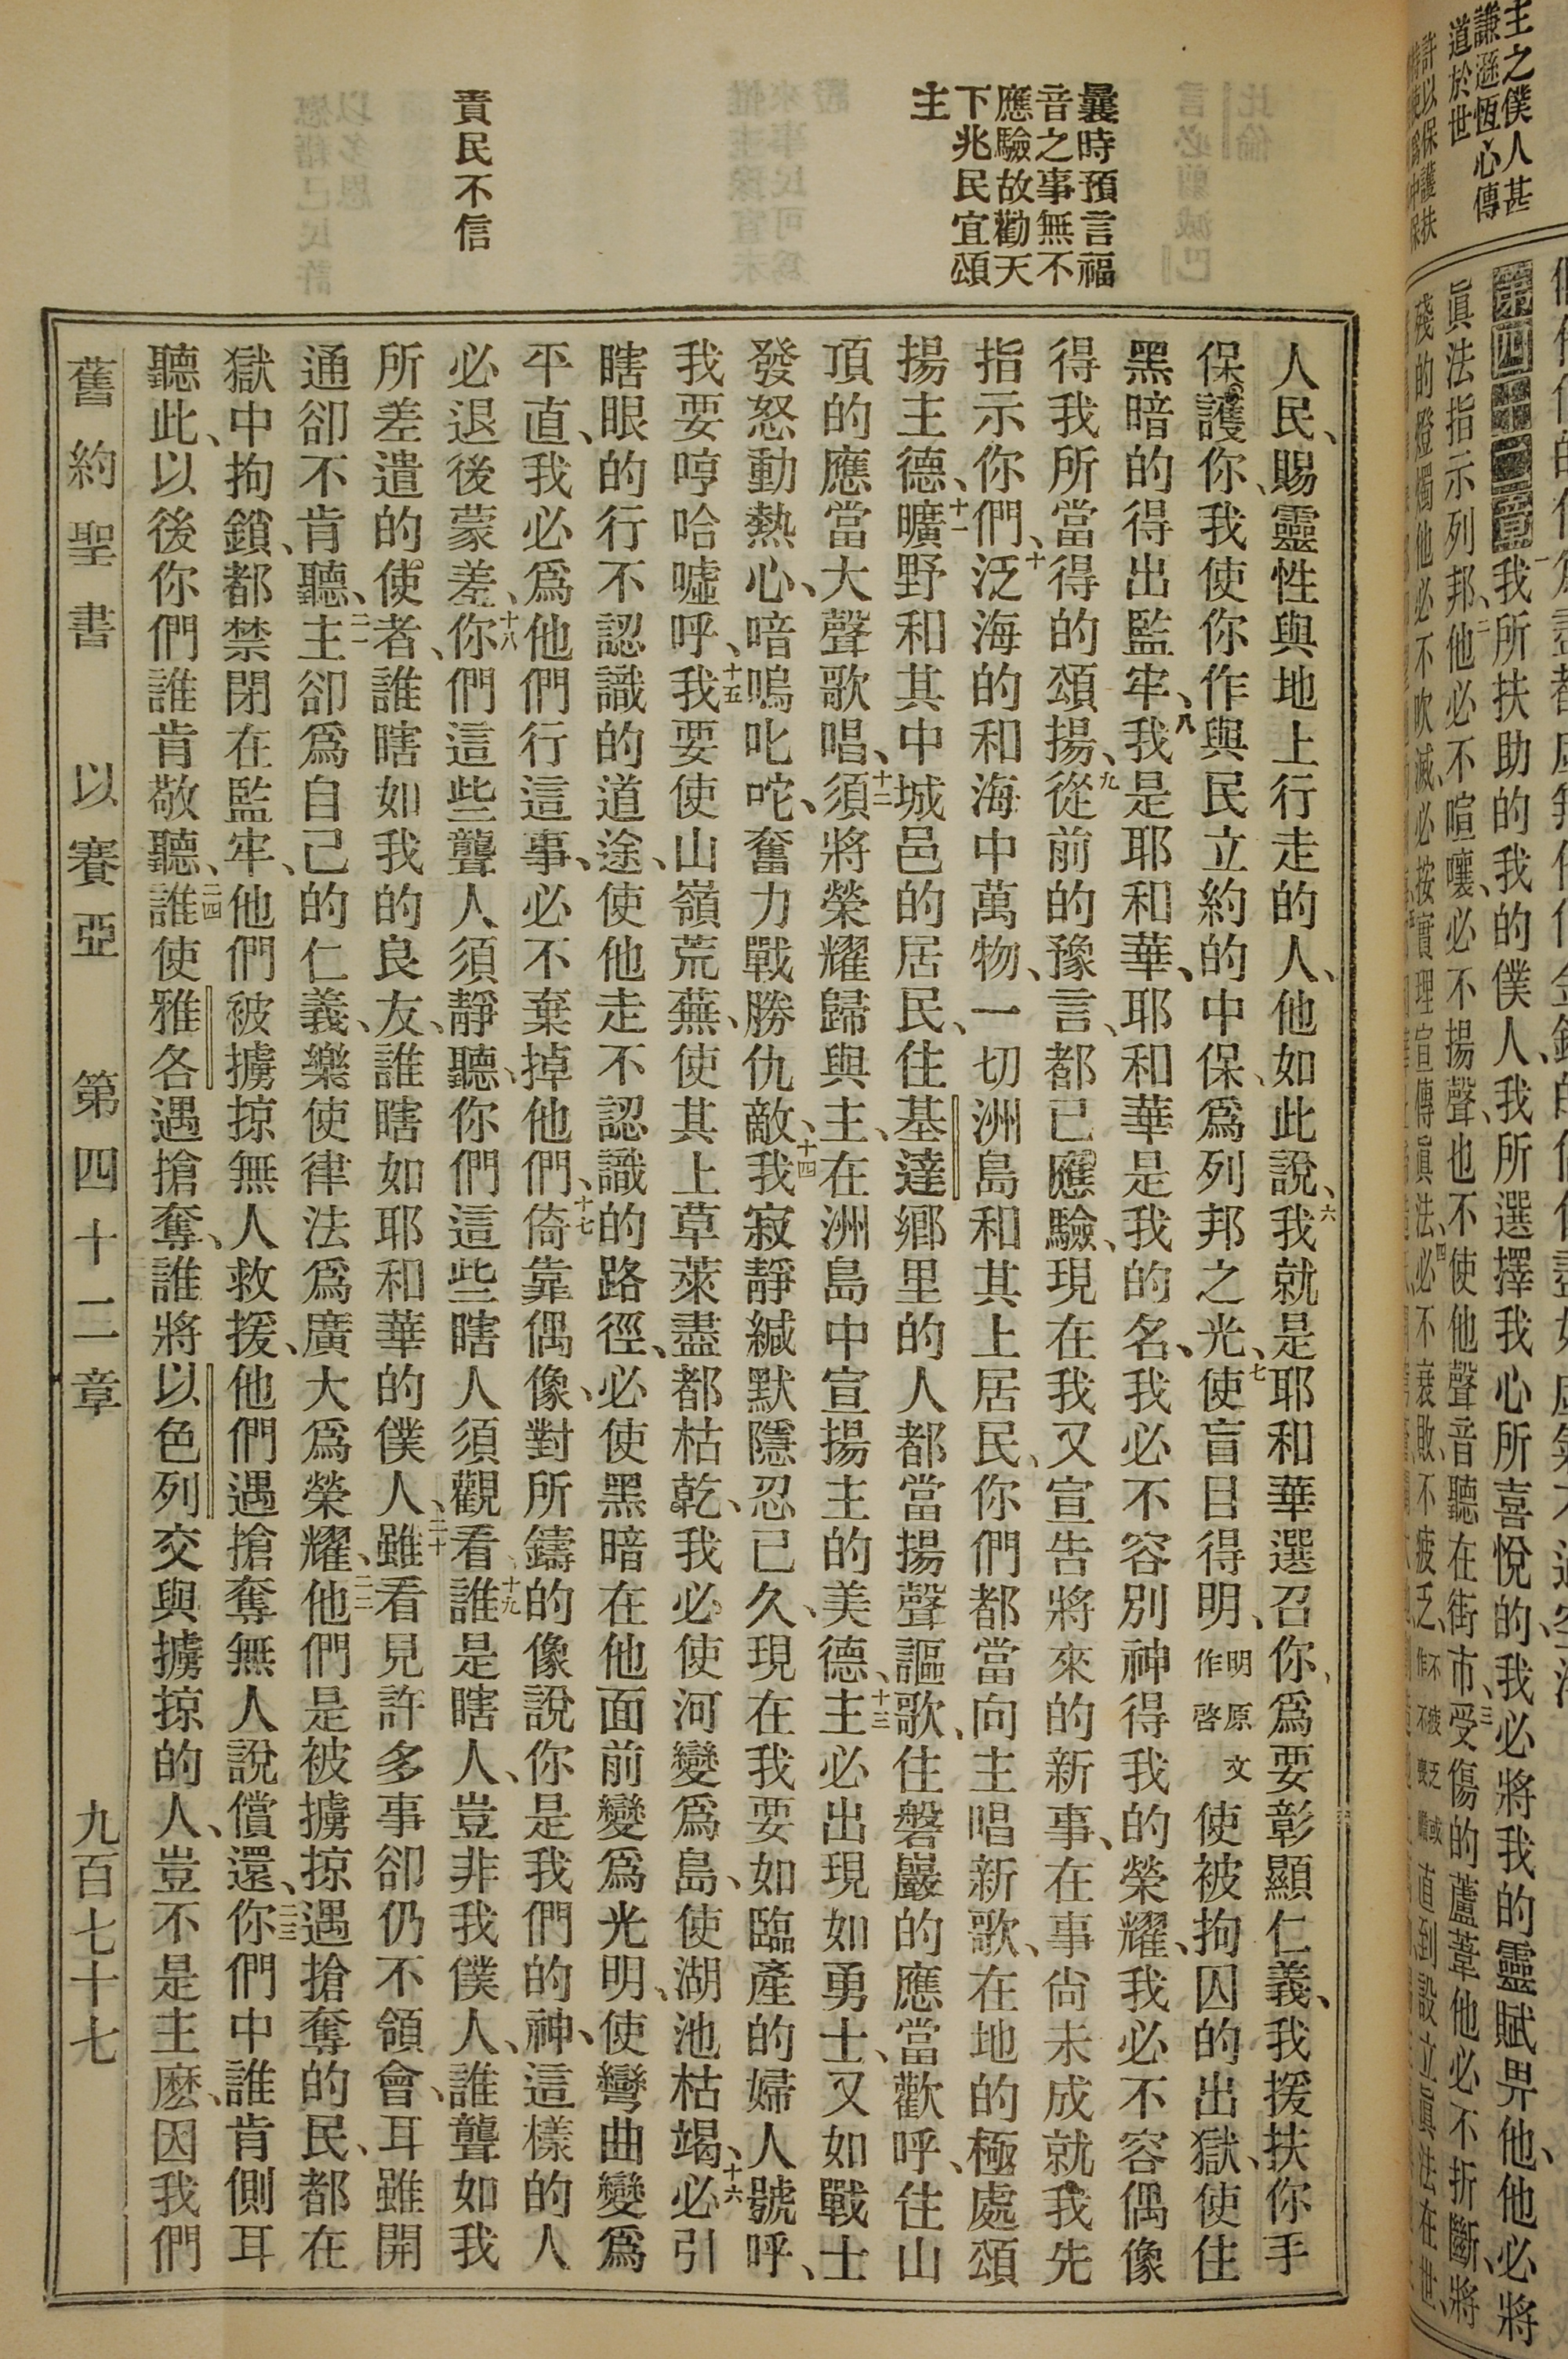 主之僕人甚
謙遜恆心傳
道於世
許以保護扶
第四十二章一我所扶助的我的僕人、我所選擇我心所喜悅的、我必將我的靈賦畀他、他必將
眞法指示列邦、二他必不喧嚷、必不揚聲、也不使他聲音聽在街市、三受傷的蘆葦他必不折斷、將
殘的燈燭他必不吹滅、必按實理宣傳眞法、四必不衰敗、不疲乏、不疲乏或作不喪膽直到設立眞法在世、
曩時預言福
音之事無不
應驗故勸天
下兆民宜頌
主
責民不信
人民、賜靈性與地上行走的人、他如此說、六我就是耶和華選召你、爲要彰顯仁義、我援扶你手
保護你、我使你作與民立約的中保、爲列邦之光、七使盲目得明、明原文作啓使被拘囚的出獄、使住
黑暗的得出監牢、八我是耶和華、耶和華是我的名、我必不容別神得我的榮耀、我必不容偶像
得我所當得的頌揚、九從前的豫言、都已應驗、現在我又宣吿將來的新事、在事尙未成就我先
指示你們、十泛海的和海中萬物、一切洲島和其上居民、你們都當向主唱新歌、在地的極處頌
揚主德、十一曠野和其中城邑的居民、住基達鄉里的人都當揚聲謳歌、住磐巖的應當歡呼、住山
頂的應當大聲歌唱、十二須將榮耀歸與主、在洲島中宣揚主的美德、十三主必出現如勇士、又如戰士
發怒動熱心、喑嗚叱咤、奮力戰勝仇敵、十四我寂靜緘默隱忍已久、現在我要如臨產的婦人號呼、
我要哼哈噓呼、十五我要使山嶺荒蕪、使其上草萊盡都枯乾、我必使河變爲島、使湖池枯竭、十六必引
瞎眼的行不認識的道途、使他走不認識的路徑、必使黑暗在他面前變爲光明、使彎曲變爲
平直、我必爲他們行這事、必不棄掉他們、十七倚靠偶像、對所鑄的像說你是我們的神、這樣的人
必退後蒙羞、十八你們這些聾人須靜聽、你們這些瞎人須觀看、十九誰是瞎人、豈非我僕人、誰聾如我
所差遣的使者、誰瞎如我的良友、誰瞎如耶和華的僕人、二十雖看見許多事卻仍不領會、耳雖開
通卻不肯聽、二一主卻爲自己的仁義、樂使律法爲廣大爲榮耀、二二他們是被擄掠遇搶奪的民、都在
獄中拘鎖、都禁閉在監牢、他們被擄掠無人救援、他們遇搶奪無人說償還、二三你們中誰肯側耳
聽此、以後你們誰肯敬聽、二四誰使雅各遇搶奪、誰將以色列交與擄掠的人、豈不是主麽、因我們
舊約聖書 以賽亞 第四十二章 九百七十七